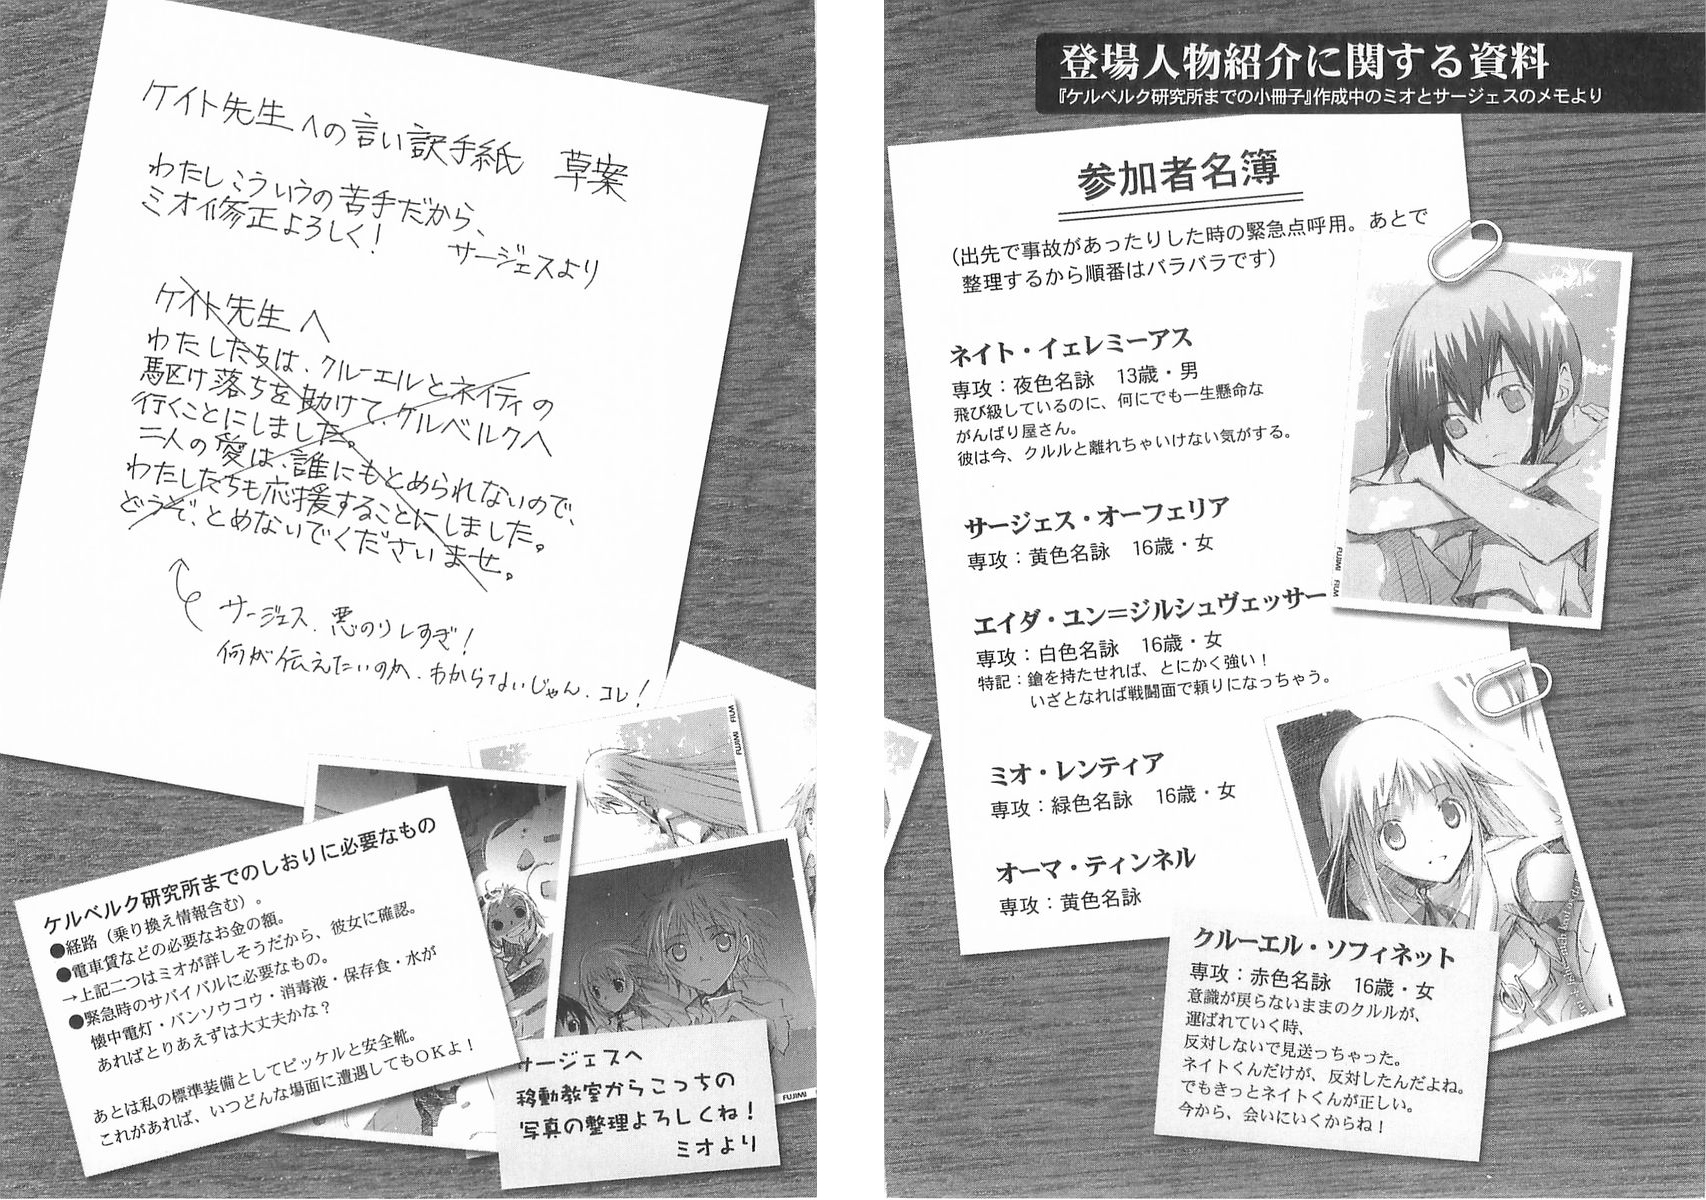 登場人物紹介に関する資料
『ケルベルク研究所までの小冊子』作成中のミオとサージェスのメモより
参加者名簿
(出先で事故があったりした時の緊急点呼用。あとで
整理するから順番はバラバラです)
ネイト・イェレミーアス
専攻：夜色名詠 13歳・男
飛び級しているのに、何にでも一生懸命な
がんばり屋さん。
彼は今、クルルと離れちゃいけない気がする。
サージェス・オーフェリア
専攻：黄色名詠 16歳・女
エイダ・ユン＝ジルシュヴェッサー
専攻：白色名詠 16歳・女
特記：鎗を持たせれば、とにかく強い！
いざとなれば戦闘面で頼りになっちゃう。
ミオ・レンティア
専攻：緑色名詠 16歳・女
オーマ・ティンネル
専攻：黄色名詠
クルーエル・ソフィネット
専攻：赤色名詠 16歳・女
意識が戻らないままのクルルが、
運ばれていく時、
反対しないで見送っちゃった。
ネイトくんだけが、反対したんだよね。
でもきっとネイトくんが正しい。
今から、会いにいくからね！
FUJIMI FILM
ケイト先生への言い訳手紙 草案
わたしこういうの苦手だから、
ミオ修正よろしく！ サージェスより
ケイト先生へ
わたしたちは、クルーエルとネイティの
駆け落ちを助けて、ケルベルクへ
行くことにしました。
二人の愛は、誰にもとめられないので、
わたしたちも応援することにしました。
どうぞ、とめないでくださいませ。
サージェス、悪のりしすぎ！
何が伝えたいのか、わからないじゃん、コレ！
FUJIMI FILM
ケルベルク研究所までのしおりに必要なもの
●経路（乗り換え情報含む）。
●電車賃などの必要なお金の額。
→上記二つはミオが詳しそうだから、彼女に確認。
●緊急時のサバイバルに必要なもの。
懐中電灯・バンソウコウ・消毒液・保存食・水が
あればとりあえずは大丈夫かな？
あとは私の標準装備としてピッケルと安全靴。
これがあれば、いつどんな場面に遭遇してもOKよ！
サージェスへ
移動教室からこっちの
写真の整理よろしくね！
ミオより
FUJIMI